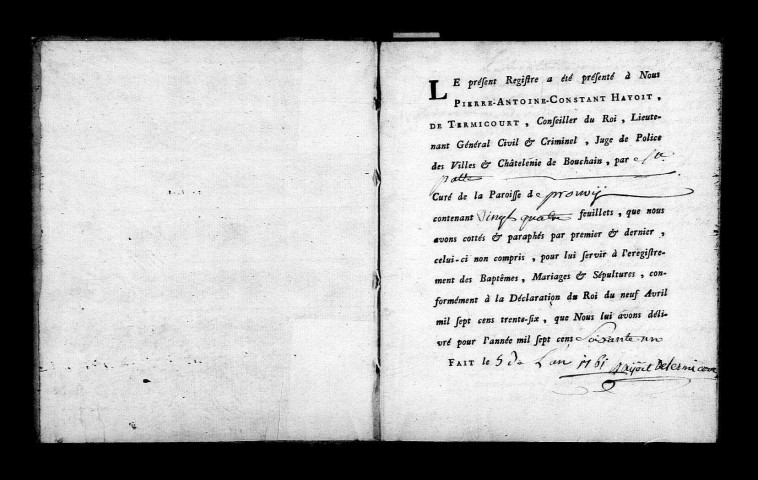 LE préſent Regiſtre a été préſenté à Nous
PIERRE-ANTOINE-CONSTANT HAYOIT,
DE TERMICOURT, Conſeiller du Roi, Lieute-
nant Général Civil & Criminel, Juge de Police
des Villes & Châtelenie de Bouchain, par
Curé de la Paroiſſe de prouvÿ
contenant vingt quatre feuillets, que nous
avons cottés & paraphés par premier & dernier,
celui-ci non compris, pour lui ſervir à l'eregiſtre-
ment des Baptêmes, Mariages & Sépultures, con-
formément à la Déclaration du Roi du neuf Avril
mil ſept cens trente-ſix, que Nous lui avons déli-
vré pour l'année mil ſept cens Soixante un
FAIT le 5 de Jan 1761 hayoit deTermicourt